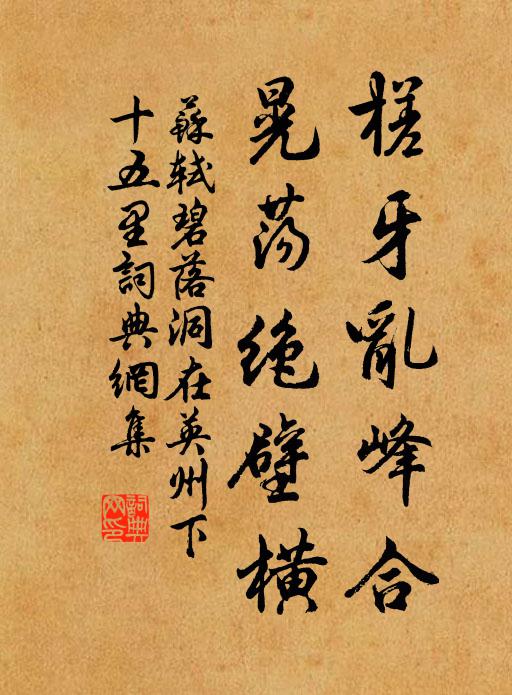 槎牙亂峰合
晃蕩絶壁橫
蘇軾碧落洞在英州下
十五里詞典網集
詞典網印